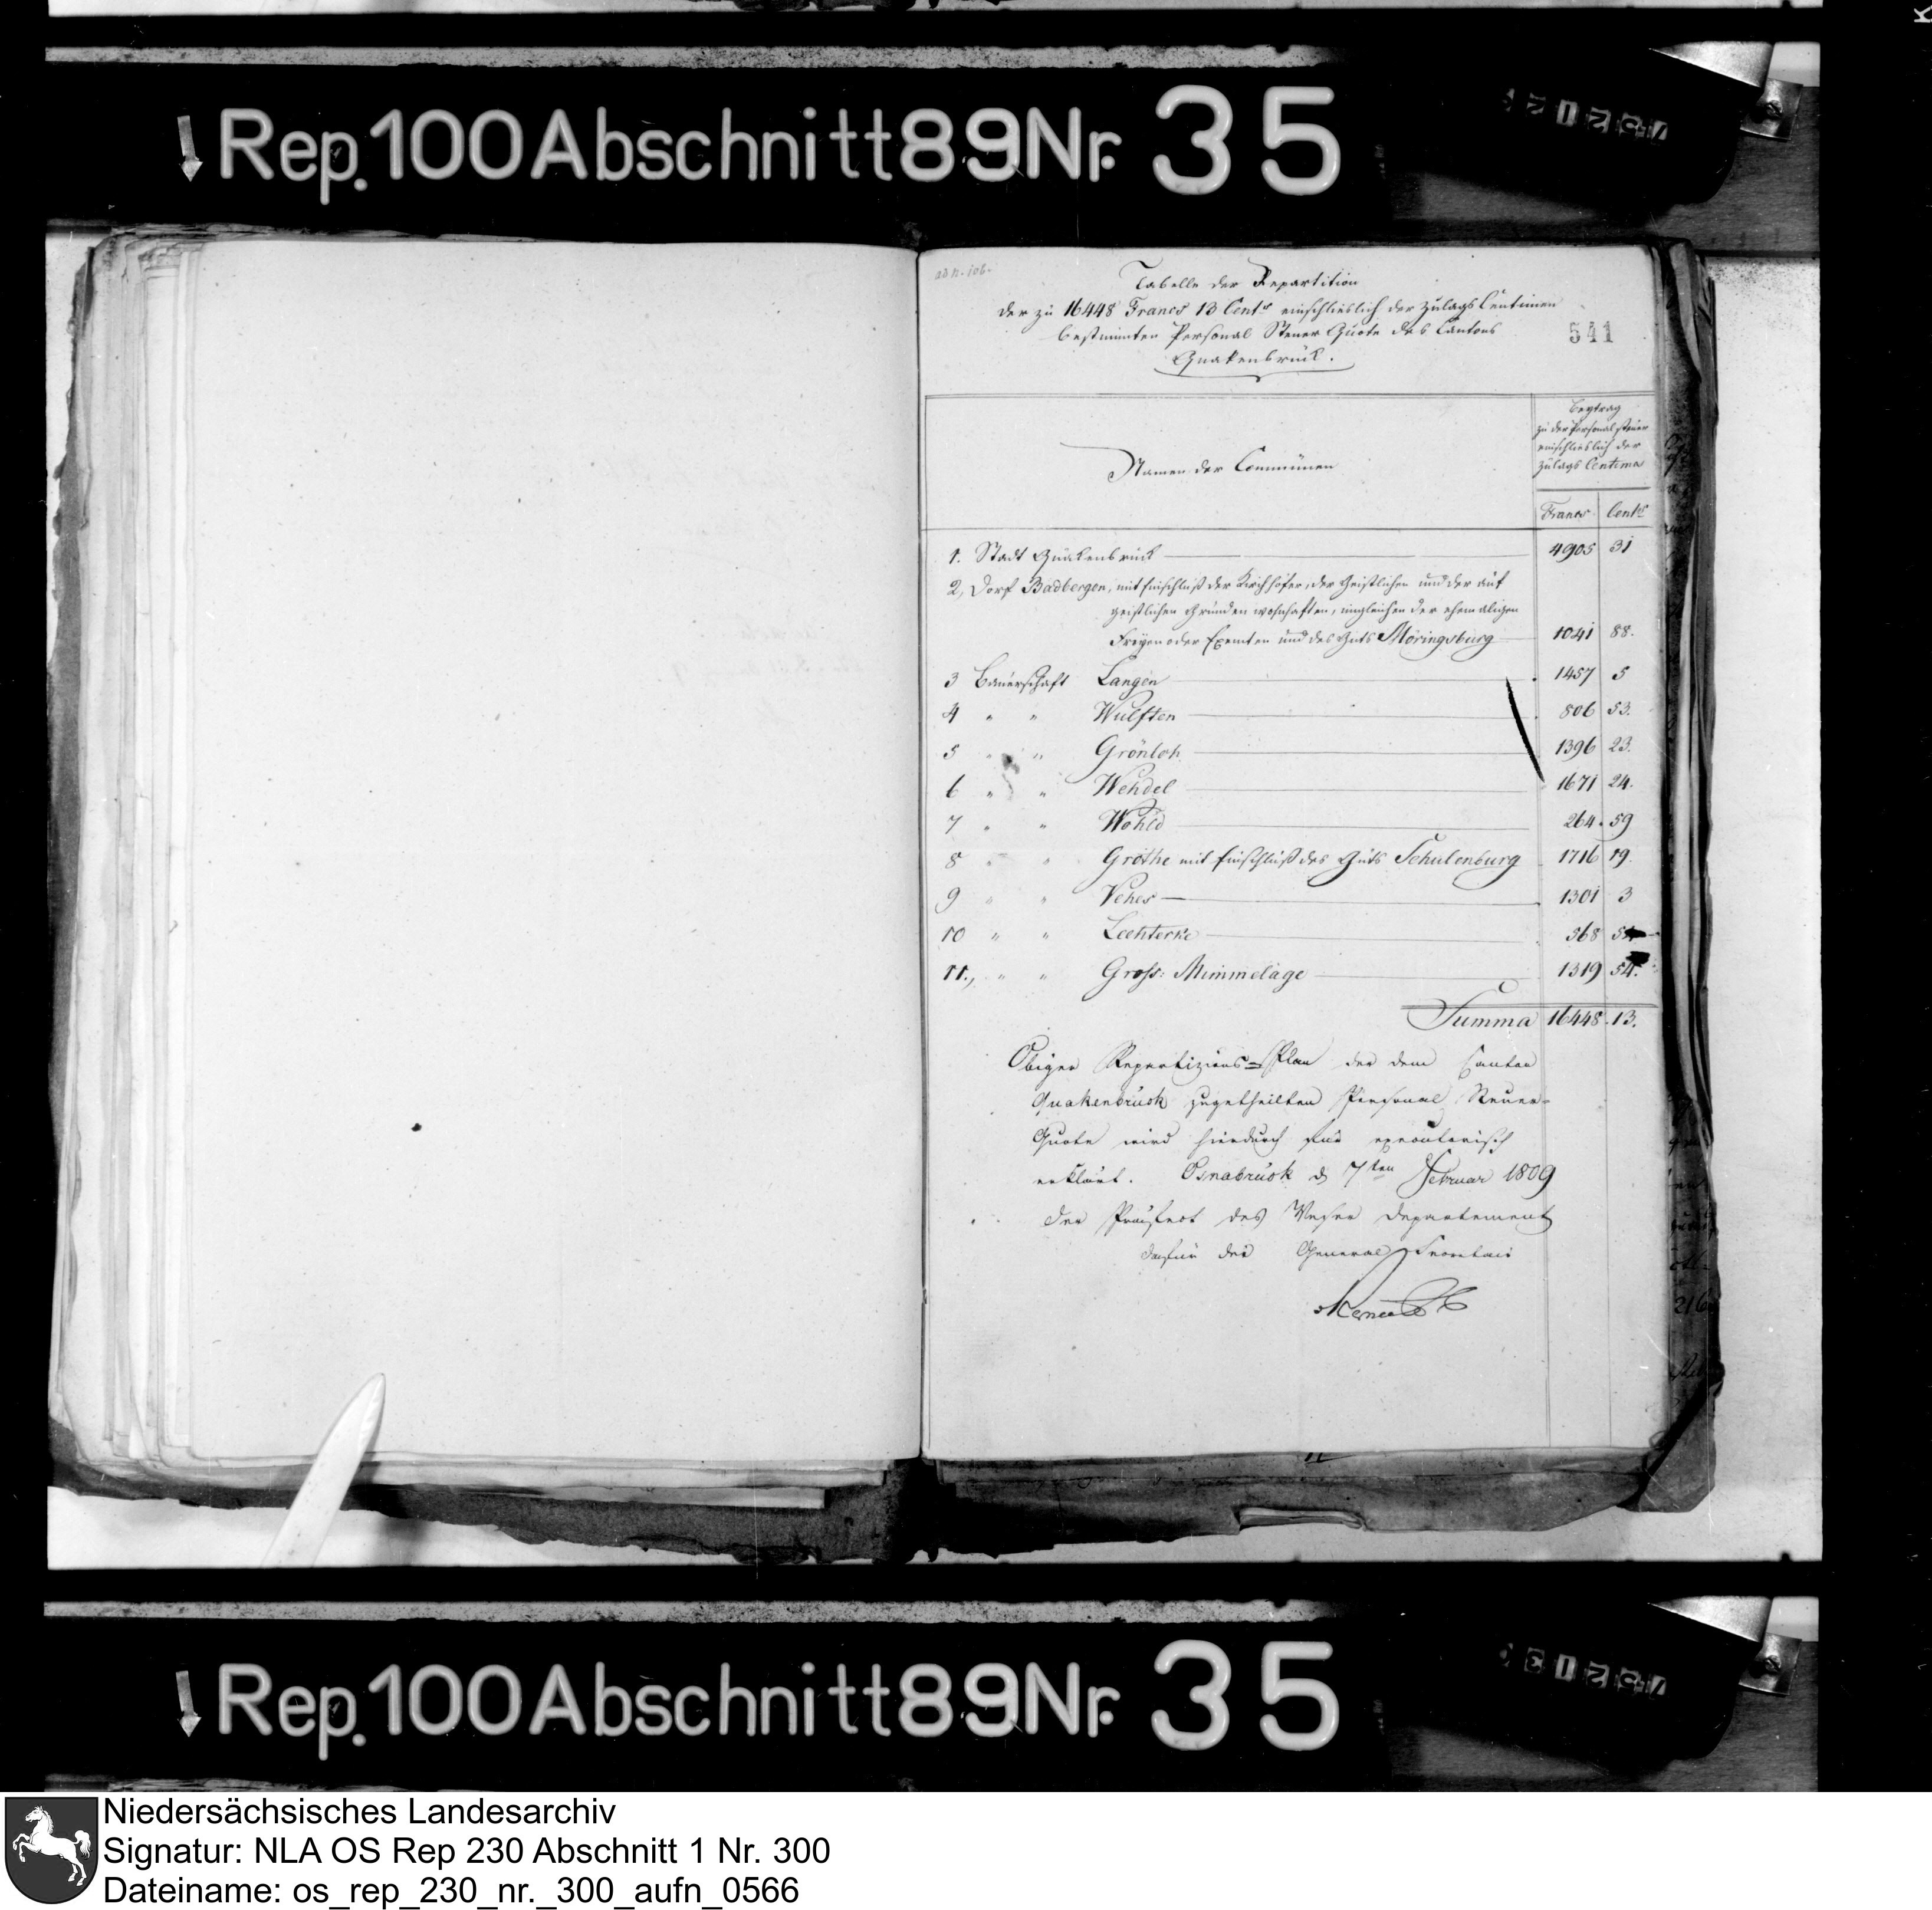 Rep. 100 Abschnitt 89 Nr. 35
ad n. 106.
Tabelle der Repartition
der zu 16448 Francs 13 Cent.s einschlieslich der Zulags Centimen
bestimmten Personal Steuer Quote des Cantons
Quakenbrück.
541
Namen der Communen
Beytrag
zu der Personalsteuer
einschlieslich der
Zulags Centimen
Francs Cents
1. Stadt Quakenbrück 4905 31
2, Dorf Badbergen, mit Einschluß der Kirchhöfer, der Geistlichen und der auf
geistlichen Gründen wohnhaften, imgleichen der ehemaligen
Freyen oder Exemten und des Guts Möringsburg 1041 88.
3 Bauerschaft Langen 1457 5
4 " " Wulften 806 53.
5 " " Grönloh 1396 23.
6 " " Wehdel 1671 24.
7 " " Wohld 264. 59
8 " " Grothe mit Einschluß des Guts Schulenburg 1716 19.
9 " " Vehes 1301 3
10 " " Lechterke 568
11., " " Gross: Mimmelage 1319 54.
Summa 16448. 13.
Obiger Repartizions=Plan der dem Canton
Quakenbrück zugetheilten Personal Steuer-
Quote wird hierdurch für executorisch
erklärt. Osnabrück d 7ten Februar 1809
Der Präfect des Weser Departement
dafür der General Secretair
Rep. 100 Abschnitt 89 Nr. 35
Niedersächsisches Landesarchiv
Signatur: NLA OS Rep 230 Abschnitt 1 Nr. 300
Dateiname: os_rep_230_nr._300_aufn_0566